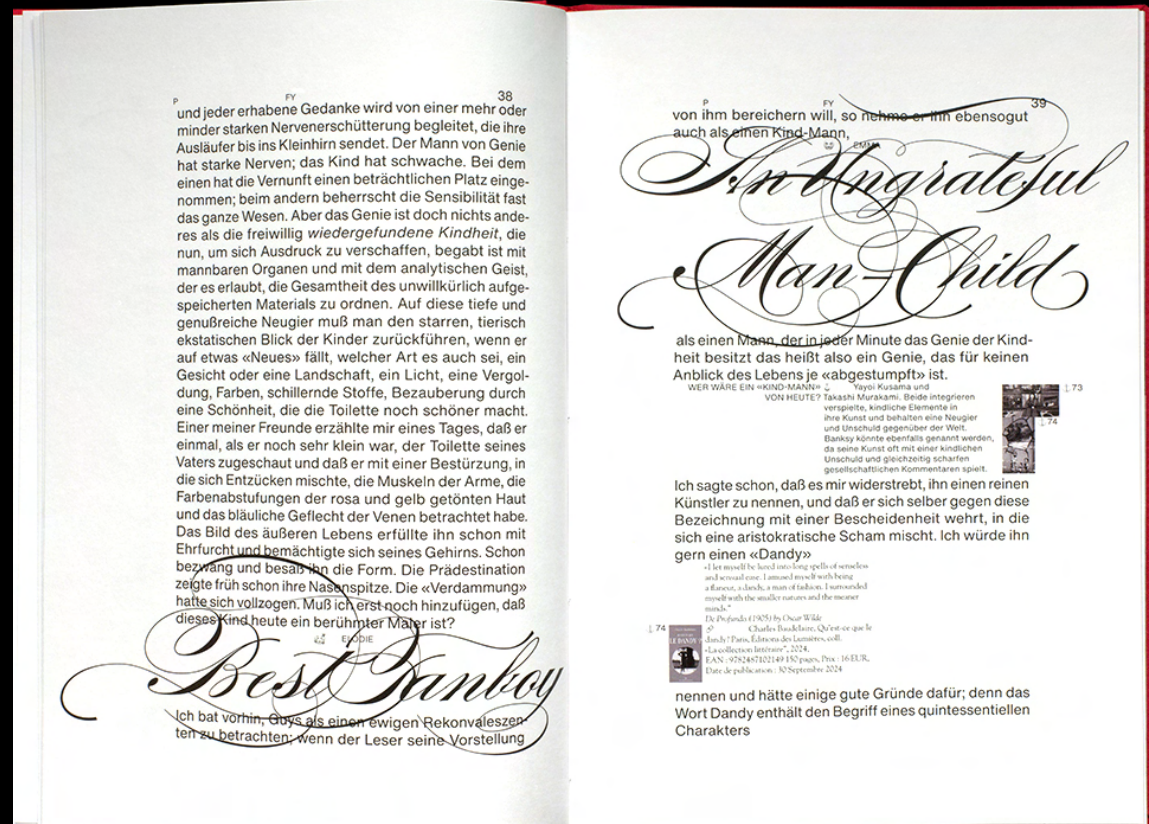 P FY 38
und jeder erhabene Gedanke wird von einer mehr oder
minder starken Nervenerschütterung begleitet, die ihre
Ausläufer bis ins Kleinhirn sendet. Der Mann von Genie
hat starke Nerven; das Kind hat schwache. Bei dem
einen hat die Vernunft einen beträchtlichen Platz einge-
nommen; beim andern beherrscht die Sensibilität fast
das ganze Wesen. Aber das Genie ist doch nichts ande-
res als die freiwillig wiedergefundene Kindheit, die
nun, um sich Ausdruck zu verschaffen, begabt ist mit
mannbaren Organen und mit dem analytischen Geist,
der es erlaubt, die Gesamtheit des unwillkürlich aufge-
speicherten Materials zu ordnen. Auf diese tiefe und
genußreiche Neugier muß man den starren, tierisch
ekstatischen Blick der Kinder zurückführen, wenn er
auf etwas «Neues» fällt, welcher Art es auch sei, ein
Gesicht oder eine Landschaft, ein Licht, eine Vergol-
dung, Farben, schillernde Stoffe, Bezauberung durch
eine Schönheit, die die Toilette noch schöner macht.
Einer meiner Freunde erzählte mir eines Tages, daß er
einmal, als er noch sehr klein war, der Toilette seines
Vaters zugeschaut und daß er mit einer Bestürzung, in
die sich Entzücken mischte, die Muskeln der Arme, die
Farbenabstufungen der rosa und gelb getönten Haut
und das bläuliche Geflecht der Venen betrachtet habe.
Das Bild des äußeren Lebens erfüllte ihn schon mit
Ehrfurcht und bemächtigte sich seines Gehirns. Schon
bezwang und besaß ihn die Form. Die Prädestination
zeigte früh schon ihre Nasenspitze. Die «Verdammung»
hatte sich vollzogen. Muß ich erst noch hinzufügen, daß
dieses Kind heute ein berühmter Maler ist?
ELODIE
Best Fanboy
Ich bat vorhin, Guys als einen ewigen Rekonvaleszen-
ten zu betrachten; wenn der Leser seine Vorstellung
P FY 39
von ihm bereichern will, so nehme er ihn ebensogut
auch als einen Kind-Mann,
EMMA
An Ungrateful
Man-Child
als einen Mann, der in jeder Minute das Genie der Kind-
heit besitzt das heißt also ein Genie, das für keinen
Anblick des Lebens je «abgestumpft» ist.
WER WÄRE EIN «KIND-MANN» ↓ Yayoi Kusama und
VON HEUTE? Takashi Murakami. Beide integrieren
verspielte, kindliche Elemente in
ihre Kunst und behalten eine Neugier
und Unschuld gegenüber der Welt.
Banksy könnte ebenfalls genannt werden,
da seine Kunst oft mit einer kindlichen
Unschuld und gleichzeitig scharfen
gesellschaftlichen Kommentaren spielt.
↓73
↓74
Ich sagte schon, daß es mir widerstrebt, ihn einen reinen
Künstler zu nennen, und daß er sich selber gegen diese
Bezeichnung mit einer Bescheidenheit wehrt, in die
sich eine aristokratische Scham mischt. Ich würde ihn
gern einen «Dandy»
«I let myself be lured into long spells of senseless
and sensual ease. I amused myself with being
a flaneur, a dandy, a man of fashion. I surrounded
myself with the smaller natures and the meaner
minds."
De Profundis (1905) by Oscar Wilde
↓74
LE DANDY
Charles Baudelaire, Qu'est-ce que le
dandy? Paris, Éditions des Lumières, coll.
«La collection littéraire", 2024,
EAN : 9782487102149 150 pages, Prix : 16 EUR,
Date de publication : 30 Septembre 2024
nennen und hätte einige gute Gründe dafür; denn das
Wort Dandy enthält den Begriff eines quintessentiellen
Charakters